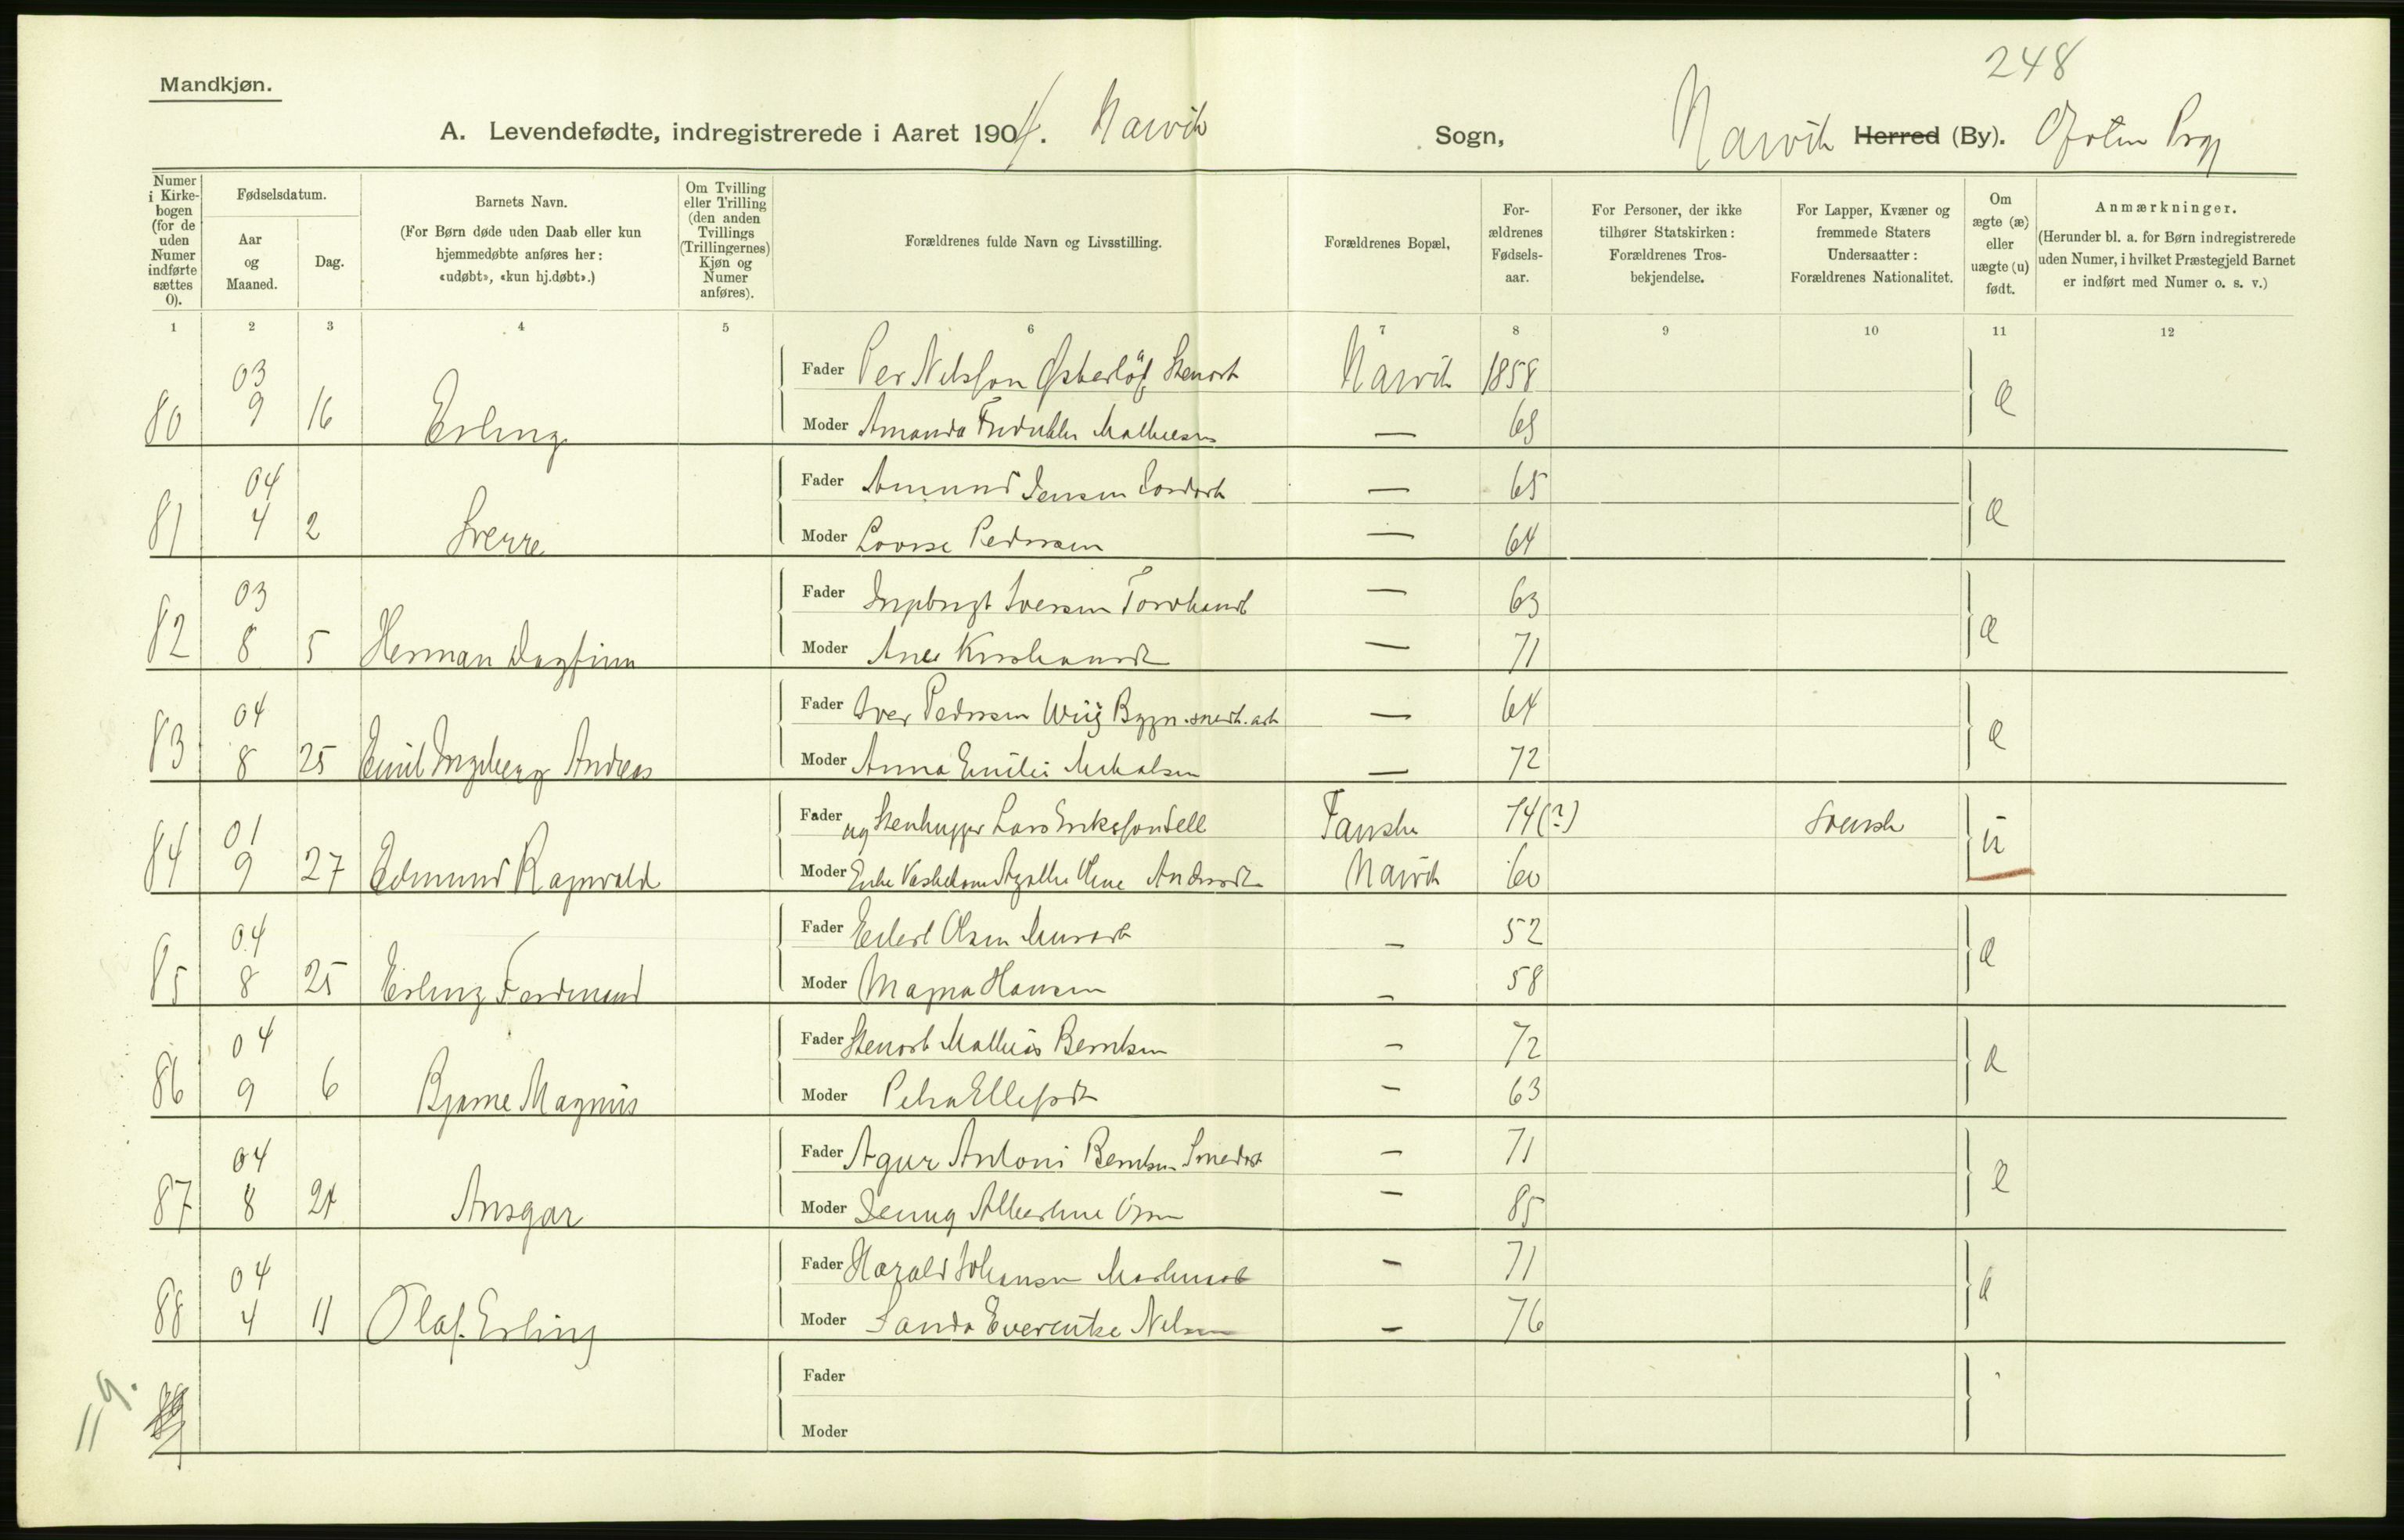 248
Mandkjøn.
A. Levendefødte, indregistrerede i Aaret 1904. Narvik Sogn, Narvik Herred (By). Ofoten Prgj
Numer i Kirkebogen (for de uden Numer indførte sættes 0).
Fødselsdatum.
Aar og Maaned.
Dag.
Barnets Navn.
(For Børn døde uden Daab eller kun hjemmedøbte anføres her: «udøbt», «kun hj.døbt».)
Om Tvilling eller Trilling (den anden Tvillings (Trillingernes) Kjøn og Numer anføres).
Forældrenes fulde Navn og Livsstilling.
Forældrenes Bopæl,
For-ældrenes Fødsels-aar.
For Personer, der ikke tilhører Statskirken: Forældrenes Tros-bekjendelse.
For Lapper, Kvæner og fremmede Staters Undersaatter: Forældrenes Nationalitet.
Om ægte (æ) eller uægte (u) født.
Anmærkninger.
(Herunder bl. a. for Børn indregistrerede uden Numer, i hvilket Præstegjeld Barnet er indført med Numer o. s. v.)
1 2 3 4 5 6 7 8 9 10 11 12
03 Fader Per Nilsson Østerlöf Stenarb Narvik 1858
80 9 16 Erling Moder Amanda Mathiesen — 68 æ
04 Fader Amund Jensen — 65
81 4 2 Sverre Moder Lovise Pedersen — 64 æ
03 Fader Ingebrigt Iversen — 63
82 8 5 Herman Dagfinn Moder Ane — 71 æ
04 Fader Iver Pedersen Wiig — 64
83 8 25 Emil Ingeberg Andreas Moder Anna Emilie Mikalsen — 72 æ
01 Fader ug Stenhugger Lars Eriksson Sell Fauske 74(?) svensk
84 9 27 Edmund Ragnvald Moder Enke Oline Andersdt Narvik 60 u
04 Fader Edert Olsen Murarb — 52
85 8 25 Erling Ferdinand Moder Magna Hansen — 58 æ
04 Fader Stenarb Mathias Berntsen — 72
86 9 6 Bjarne Magnus Moder Petra Ellefsdt — 63 æ
04 Fader Agur Antoni Berntsen Smedarb — 71
87 8 24 Ansgar Moder Jenny Albertine — 85 æ
04 Fader Harald Johansen — 71
88 4 11 Olaf Erling Moder Sanda Nilsen — 76 æ
Fader
Moder
119.